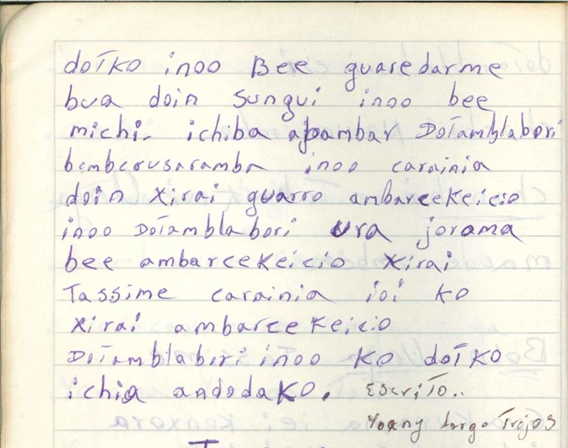 doiko inoo Bee guaredarme
bua doin sungui inoo bee
michi. ichiba apambar Doiamblabori
bemberusaramba inoo carainia
doin xirai guarro ambarcekeicio
inoo Doiamblabori ura jorama
bee ambarcekeicio xirai
Tassime carainia ioi ko
xirai ambarcekeicio
Doiamblabori inoo ko doiko
ichia andodako. Escrito..
Yoany